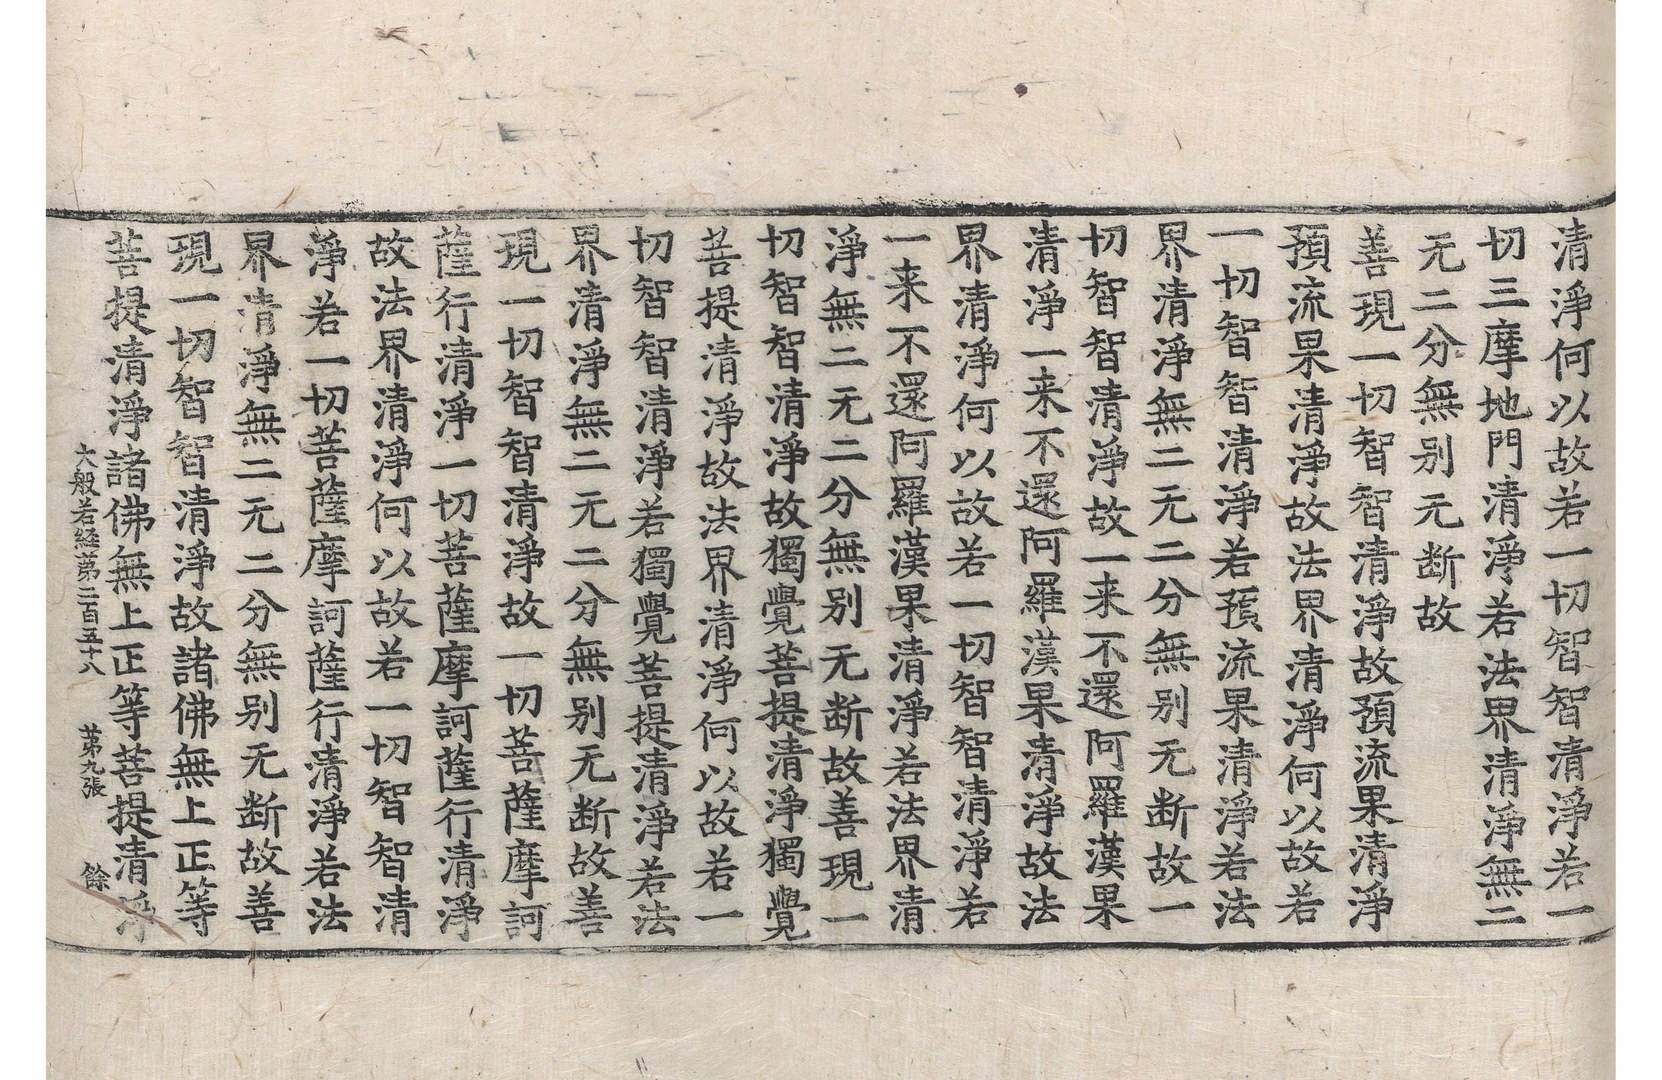 清淨何以故若一切智智清淨若一
切三摩地門清淨若法界清淨無二
无二分無别无断故
善現一切智智清淨故預流果清淨
預流果清淨故法界清淨何以故若
一切智智清淨若預流果清淨若法
界清淨無二无二分無别无断故一
切智智清淨故一来不還阿羅漢果
清淨一来不還阿羅漢果清淨故法
界清淨何以故若一切智智清淨若
一来不還阿羅漢果清淨若法界清
淨無二无二分無别无断故善現一
切智智清淨故獨覺菩提清淨獨覺
菩提清淨故法界清淨何以故若一
切智智清淨若獨覺菩提清淨若法
界清淨無二无二分無别无断故善
現一切智智清淨故一切菩薩摩訶
薩行清淨一切菩薩摩訶薩行清淨
故法界清淨何以故若一切智智清
淨若一切菩薩摩訶薩行清淨若法
界清淨無二无二分無别无断故善
現一切智智清淨故諸佛無上正等
菩提清淨諸佛無上正等菩提清淨
大般若経第二百五十八 苐九張 餘